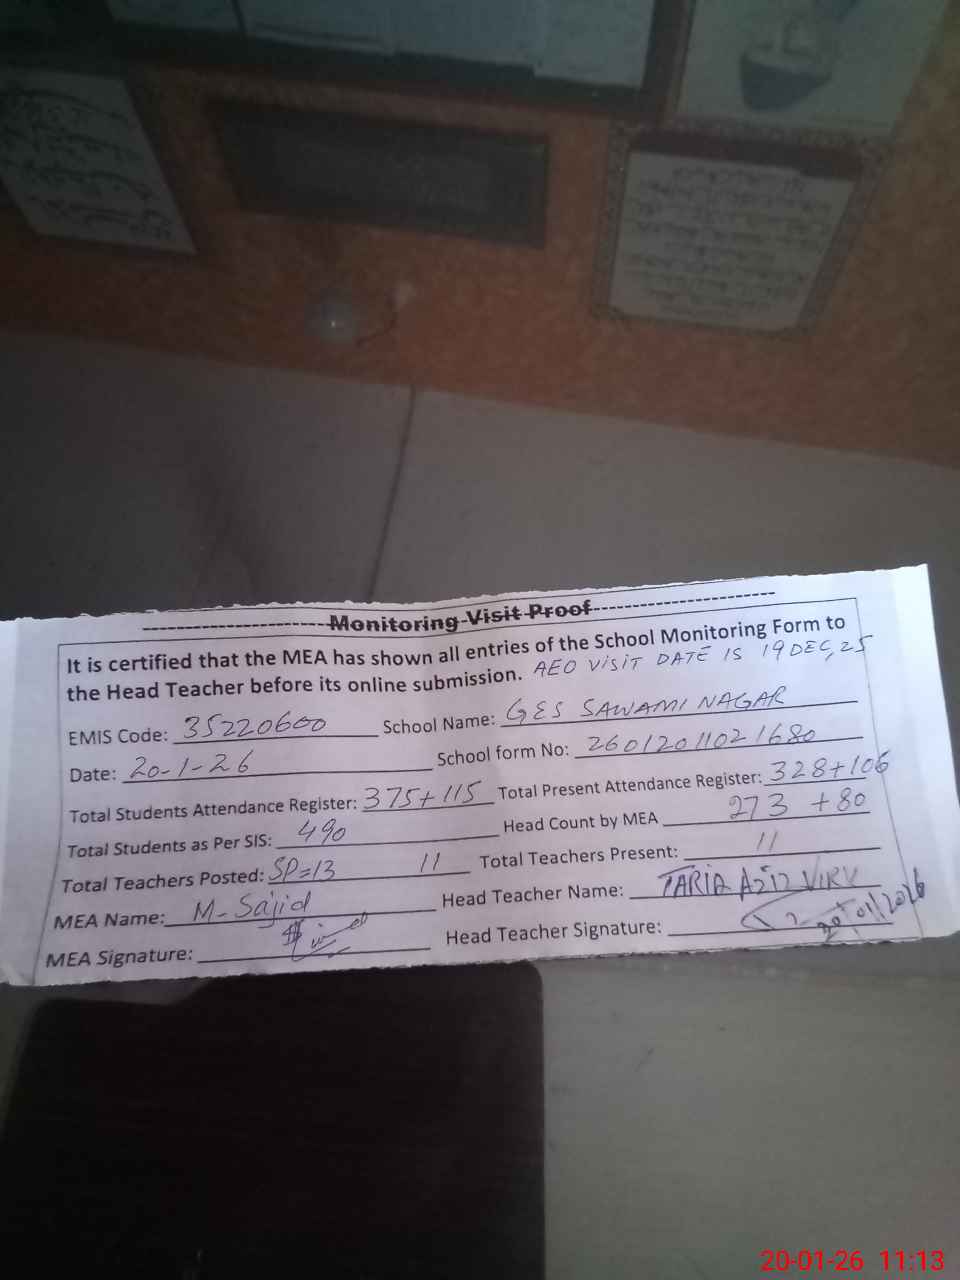 Monitoring Visit Proof
It is certified that the MEA has shown all entries of the School Monitoring Form to
the Head Teacher before its online submission. AEO VISIT DATE IS 19 DEC, 25
EMIS Code: 35220600 School Name: GES SAWAMI NAGAR
Date: 20-1-26 School form No: 26012011021680
Total Students Attendance Register: 375+115 Total Present Attendance Register: 328+106
Total Students as Per SIS: 490 Head Count by MEA 273 +80
Total Teachers Posted: SP=13 11 Total Teachers Present: 11
MEA Name: M-Sajid Head Teacher Name: TARIQ AZIZ VIRK
MEA Signature: Head Teacher Signature: 20/01/2026
20-01-26 11:13